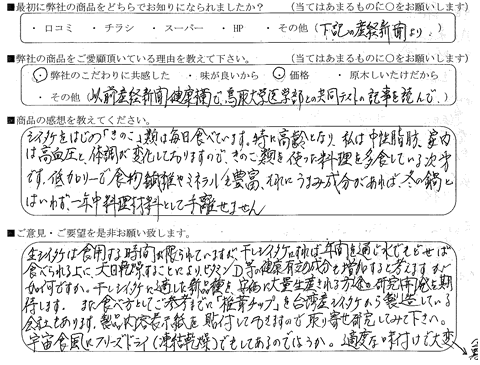 ■最初に弊社の商品をどちらでお知りになられましたか？（当てはまるものに○をお願いします）
・ 口コミ ・ チラシ ・ スーパー ・ HP ・ その他（下記の産経新聞より.）
■弊社の商品をご愛顧頂いている理由を教えて下さい。（当てはまるものに○をお願いします）
・弊社のこだわりに共感した ・ 味が良いから ・ 価格 ・ 原木しいたけだから
・ その他（以前産経新聞健康欄で、鳥取大学医学部との共同テストの記事を読んで.）
■商品の感想を教えてください。
シイタケをはじめ「きのこ」類は毎日食べています。特に高齢となり、私は中性脂肪、家内
は高血圧と体調が変化しておりますので、きのこ類を使った料理を多食している次第
です。低カロリーで食物繊維やミネラルも豊富、それにうまみ成分があれば、冬の鍋と
はいわず、一年中料理材料として手離せません
■ご意見・ご要望を是非お願い致します。
生シイタケは食用する時間が限られていますが、干しシイタケにすれば、年間を通じ水でもどせば
食べられる上に、天日乾燥することによりビタミンD等の健康有効成分も増加すると考えますが
如何ですか。干しシイタケに適した新品種を安価に大量生産される方法の研究開発を期
待します。また食べ方としてご参考までに「椎茸チップ」を台湾産シイタケから製造している
会社もあります。製品内容表示紙を貼付しておきますので取り寄せ研究してみて下さい。
宇宙食風にフリーズドライ（凍結乾燥）でもしてあるのでしょうか。適度な味付けで大変